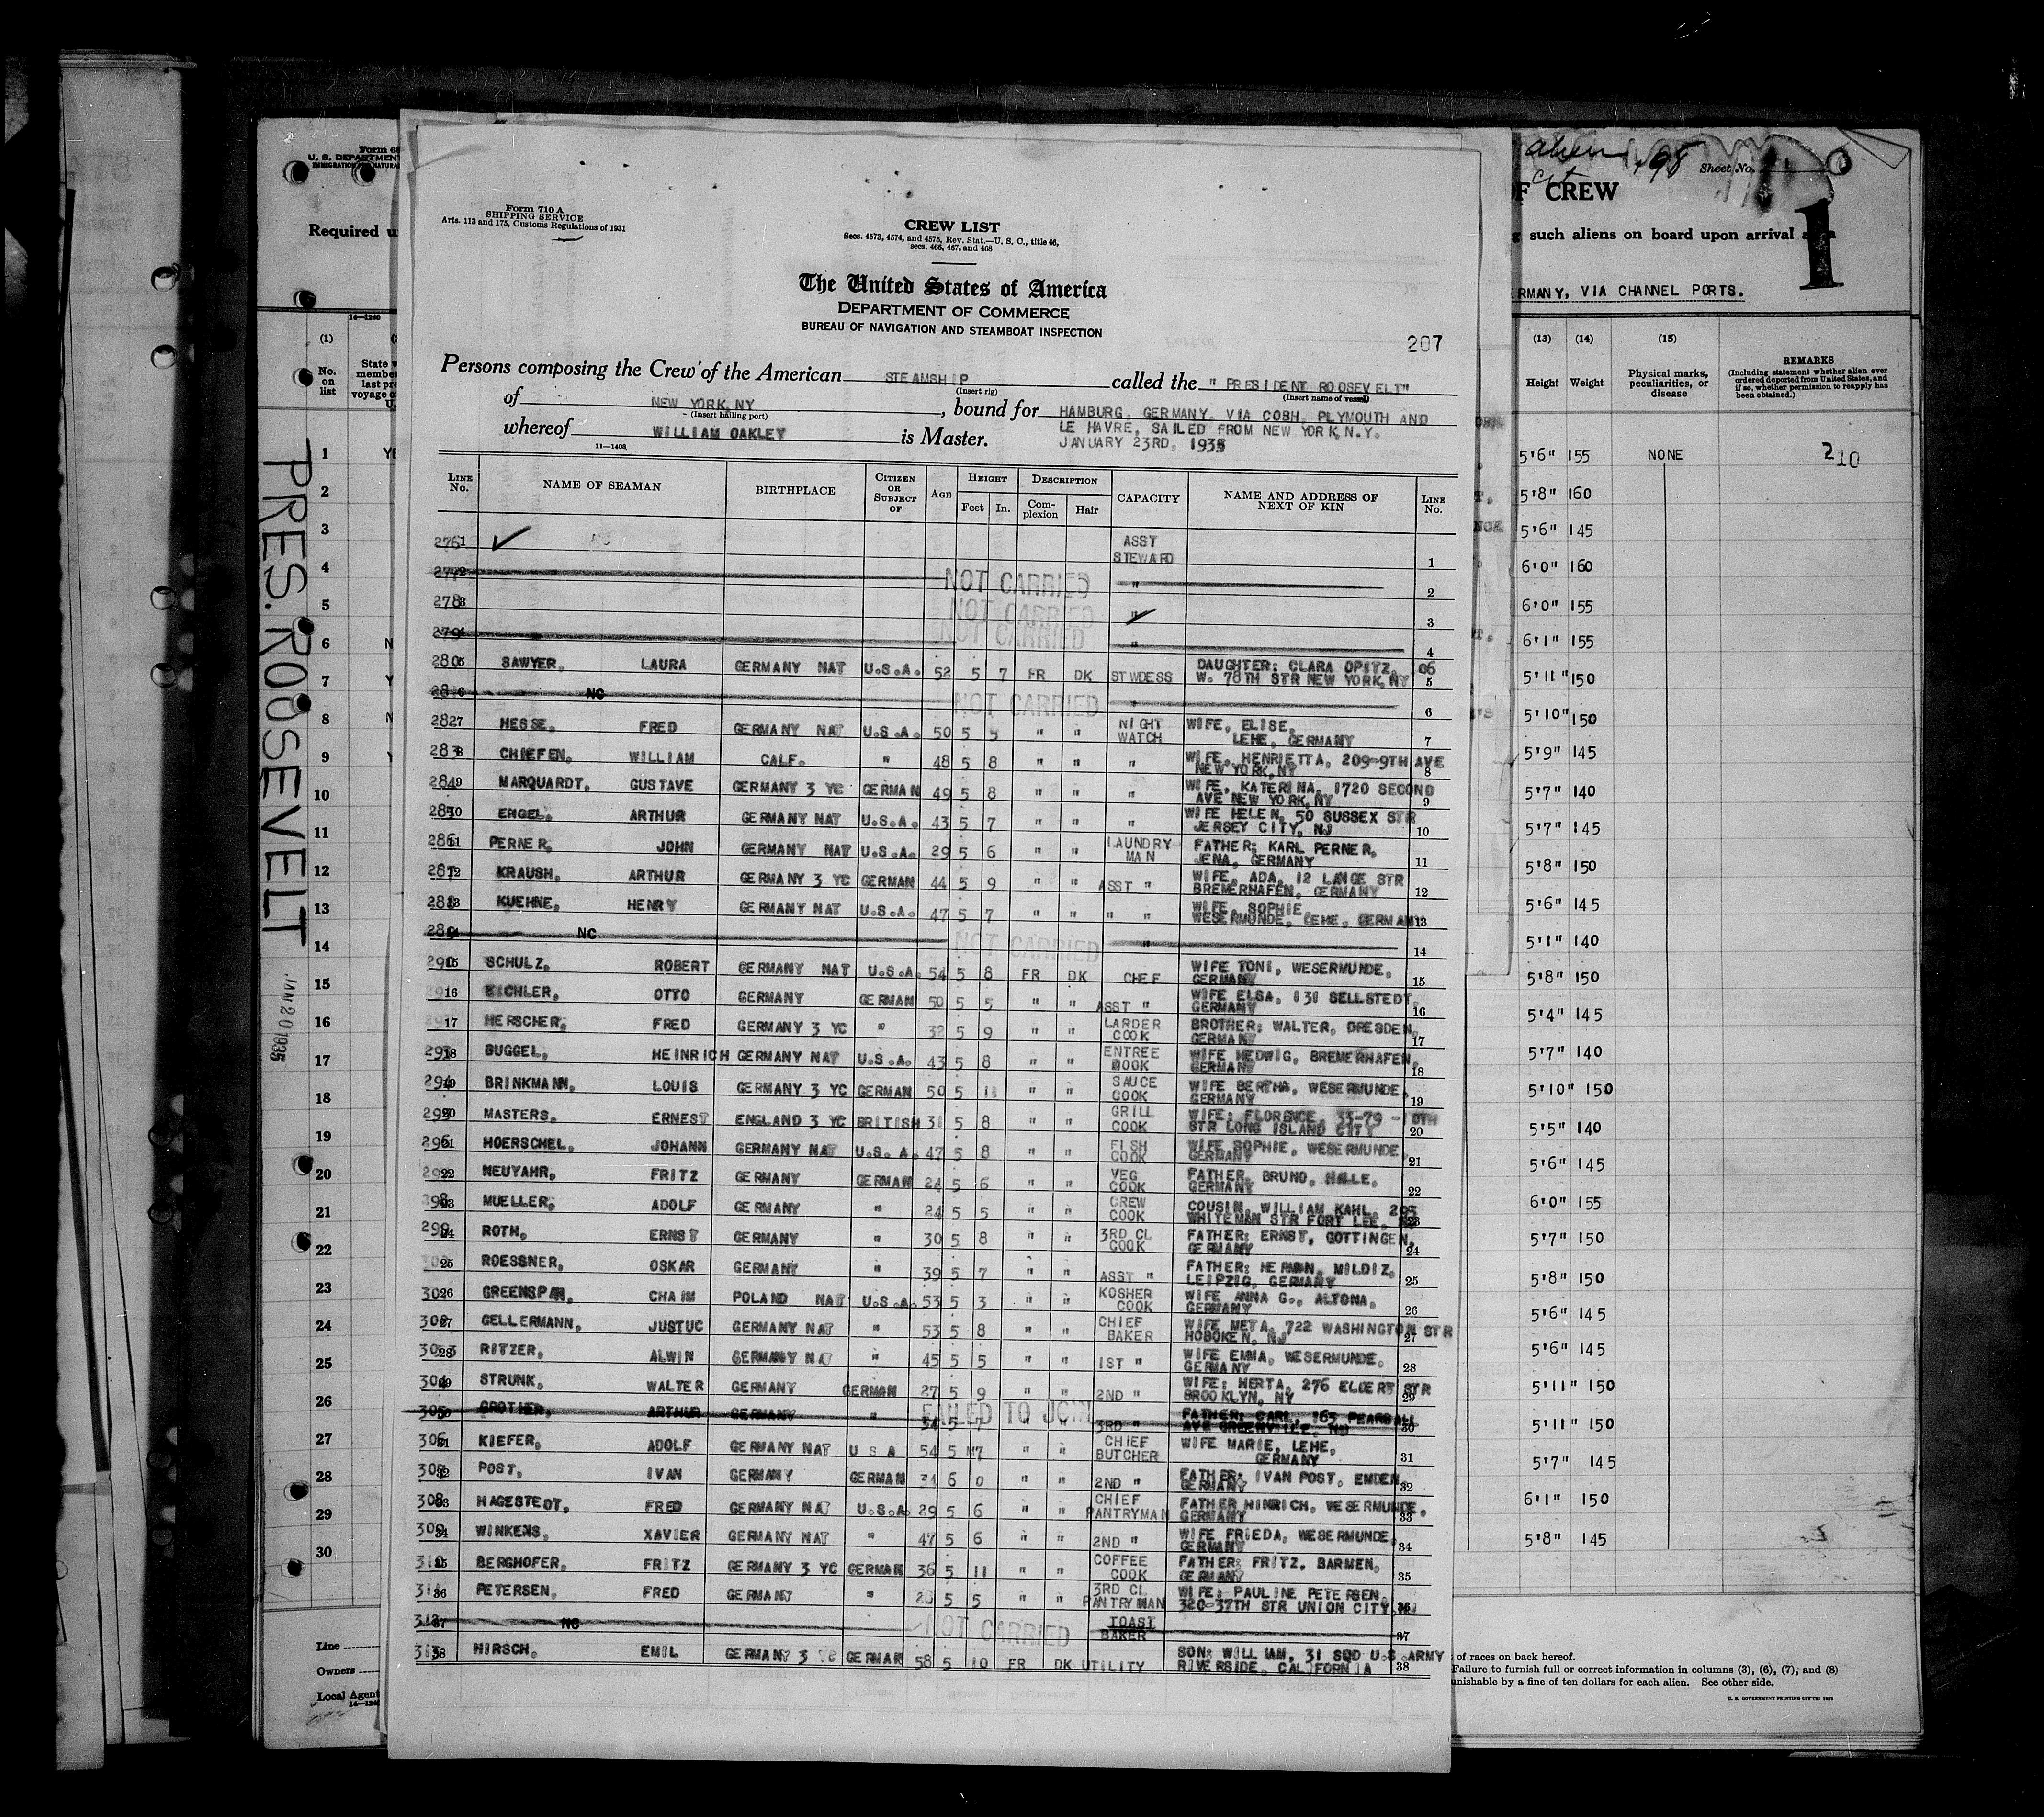 Form 710 A
SHIPPING SERVICE
Arts. 113 and 175, Customs Regulations of 1931
CREW LIST
Secs. 4573, 4574, and 4575, Rev. Stat.—U. S. C., title 46,
secs. 466, 467, and 468
The United States of America
DEPARTMENT OF COMMERCE
BUREAU OF NAVIGATION AND STEAMBOAT INSPECTION
207
Persons composing the Crew of the American STEAMSHIP called the "PRESIDENT ROOSEVELT"
(Insert rig) (Insert name of vessel)
of NEW YORK,NY, bound for HAMBURG, GERMANY, VIA COBH, PLYMOUTH AND
(Insert hailing port) LE HAVRE, SAILED FROM NEW YORK,N.Y.
whereof WILLIAM OAKLEY is Master. JANUARY 23RD, 1935
11—1408
LINE No. NAME OF SEAMAN BIRTHPLACE CITIZEN OR SUBJECT OF AGE HEIGHT Feet In. DESCRIPTION Complexion Hair CAPACITY NAME AND ADDRESS OF NEXT OF KIN LINE No.
276 1 ASST STEWARD 1
277 2 NOT CARRIED " 2
278 3 NOT CARRIED " 3
279 4 NOT CARRIED " 4
280 5 SAWYER, LAURA GERMANY NAT U.S.A. 52 5 7 FR DK STWDESS DAUGHTER: CLARA OPITZ, 106 W. 78TH STR NEW YORK,NY 5
281 6 NC NOT CARRIED " 6
282 7 HESSE, FRED GERMANY NAT U.S.A. 50 5 5 " " NIGHT WATCH WIFE, ELISE, LEHE, GERMANY 7
283 8 CHIEFEN, WILLIAM CALF. " 48 5 8 " " " WIFE, HENRIETTA, 209-9TH AVE NEW YORK,NY 8
284 9 MARQUARDT, GUSTAVE GERMANY 3 YC GERMAN 49 5 8 " " " WIFE, KATERINA, 1720 SECOND AVE NEW YORK,NY 9
285 10 ENGEL, ARTHUR GERMANY NAT U.S.A. 43 5 7 " " " WIFE HELEN, 50 SUSSEX STR JERSEY CITY, NJ 10
286 11 PERNER, JOHN GERMANY NAT U.S.A. 29 5 6 " " LAUNDRY MAN FATHER; KARL PERNER, JENA, GERMANY 11
287 12 KRAUSH, ARTHUR GERMANY 3 YC GERMAN 44 5 9 " " ASST " WIFE, ADA, 12 LANGE STR BREMERHAFEN, GERMANY 12
288 13 KUEHNE, HENRY GERMANY NAT U.S.A. 47 5 7 " " " " WIFE, SOPHIE, WESERMUNDE, LEHE, GERMANY 13
289 14 NC NOT CARRIED " 14
290 15 SCHULZ, ROBERT GERMANY NAT U.S.A. 54 5 8 FR DK CHEF WIFE TONI, WESERMUNDE, GERMANY 15
291 16 EICHLER, OTTO GERMANY GERMAN 50 5 5 " " ASST " WIFE ELSA, 131 SELLSTEDT, GERMANY 16
17 HERSCHER, FRED GERMANY 3 YC " 32 5 9 " " LARDER COOK BROTHER; WALTER, DRESDEN, GERMANY 17
293 18 BUGGEL, HEINRICH GERMANY NAT U.S.A. 43 5 8 " " ENTREE COOK WIFE HEDWIG, BREMERHAFEN, GERMANY 18
294 19 BRINKMANN, LOUIS GERMANY 3 YC GERMAN 50 5 11 " " SAUCE COOK WIFE BERTHA, WESERMUNDE, GERMANY 19
295 20 MASTERS, ERNEST ENGLAND 3 YC BRITISH 31 5 8 " " GRILL COOK WIFE; FLORENCE, 33-79 - 10TH STR LONG ISLAND CITY 20
296 21 HOERSCHEL, JOHANN GERMANY NAT U.S. A. 47 5 8 " " FISH COOK WIFE SOPHIE, WESERMUNDE, GERMANY 21
297 22 NEUYAHR, FRITZ GERMANY GERMAN 24 5 6 " " VEG COOK FATHER, BRUNO, HALLE, GERMANY 22
298 23 MUELLER, ADOLF GERMANY " 24 5 5 " " CREW COOK COUSIN, WILLIAM KAHL, 203 WHITEMAN STR FORT LEE, 23
299 24 ROTH, ERNST GERMANY " 30 5 8 " " 3RD CL COOK FATHER; ERNST, GOTTINGEN, GERMANY 24
25 ROESSNER, OSKAR GERMANY " 39 5 7 " " ASST " FATHER; HERMAN, MILDIZ, LEIPZIG, GERMANY 25
301 26 GREENSPAN, CHAIM POLAND NAT U.S.A. 53 5 3 " " KOSHER COOK WIFE ANNA G., ALTONA, GERMANY 26
302 27 GELLERMANN, JUSTUC GERMANY NAT " 53 5 8 " " CHIEF BAKER WIFE META, 722 WASHINGTON STR HOBOKEN, NJ 27
303 28 RITZER, ALWIN GERMANY NAT " 45 5 5 " " 1ST " WIFE EMMA, WESERMUNDE, GERMANY 28
304 29 STRUNK, WALTER GERMANY GERMAN 27 5 9 " " 2ND " WIFE; HERTA, 276 ELDERT STR BROOKLYN, NY 29
305 30 GROTHER, ARTHUR GERMANY " FAILED TO JOIN 3RD " FATHER; CARL, 30
306 31 KIEFER, ADOLF GERMANY NAT U S A 54 5 7 " " CHIEF BUTCHER WIFE MARIE, LEHE, GERMANY 31
307 32 POST, IVAN GERMANY GERMAN 34 6 0 " " 2ND " FATHER; IVAN POST, EMDEN, GERMANY 32
308 33 HAGESTEDT, FRED GERMANY NAT U.S.A. 29 5 6 " " CHIEF PANTRYMAN FATHER HINRICH, WESERMUNDE, GERMANY 33
309 34 WINKENS, XAVIER GERMANY NAT " 47 5 6 " " 2ND " WIFE FRIEDA, WESERMUNDE, GERMANY 34
310 35 BERGHOFER, FRITZ GERMANY 3 YC GERMAN 36 5 11 " " COFFEE COOK FATHER; FRITZ, BARMEN, GERMANY 35
311 36 PETERSEN, FRED GERMANY " 28 5 5 " " 3RD CL PANTRYMAN WIFE; PAULINE PETERSEN, 320-37TH STR UNION CITY,NJ 36
312 37 NC NOT CARRIED TOAST BAKER 37
313 38 HIRSCH, EMIL GERMANY 3 YC GERMAN 58 5 10 FR DK UTILITY SON; WILLIAM, 31 SQD U.S.ARMY RIVERSIDE, CALIFORNIA 38
U. S. DEPARTMENT
Required u
(1)
No. on list
14—1240
PRES. ROOSEVELT
JAN 20 1935
1
2
3
4
5
6
7
8
9
10
11
12
13
14
15
16
17
18
19
20
21
22
23
24
25
26
27
28
29
30
Line
Owners
Local Agent
Sheet No.
OF CREW
such aliens on board upon arrival
1
ERMANY, VIA CHANNEL PORTS.
(13) (14) (15)
Height Weight Physical marks, peculiarities, or disease REMARKS
(Including statement whether alien ever ordered deported from United States, and if so, whether permission to reapply has been obtained.)
5'6" 155 NONE 210
5'8" 160
5'6" 145
6'0" 160
6'0" 155
6'1" 155
5'11" 150
5'10" 150
5'9" 145
5'7" 140
5'7" 145
5'8" 150
5'6" 145
5'1" 140
5'8" 150
5'4" 145
5'7" 140
5'10" 150
5'5" 140
5'6" 145
6'0" 155
5'7" 150
5'8" 150
5'6" 145
5'6" 145
5'11" 150
5'11" 150
5'7" 145
6'1" 150
5'8" 145
of races on back hereof.
Failure to furnish full or correct information in columns (3), (6), (7), and (8)
unishable by a fine of ten dollars for each alien. See other side.